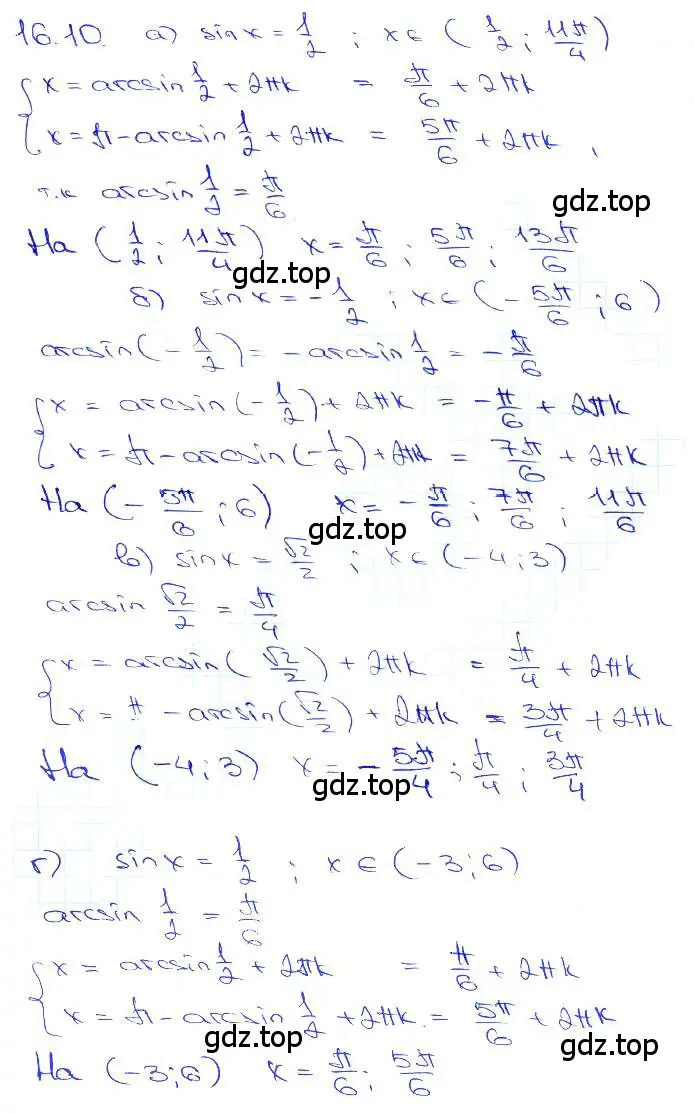 16.10. а) sin x = 1/2 ; x ∈ (1/2 ; 11π/4)
{ x = arcsin 1/2 + 2πk = π/6 + 2πk
{ x = π - arcsin 1/2 + 2πk = 5π/6 + 2πk ,
т.к arcsin 1/2 = π/6
gdz.top
На (1/2 ; 11π/4) x = π/6 ; 5π/6 ; 13π/6
gdz.top
б) sin x = - 1/2 ; x ∈ (- 5π/6 ; 6)
arcsin(- 1/2) = - arcsin 1/2 = - π/6
{ x = arcsin(- 1/2) + 2πk = - π/6 + 2πk
{ x = π - arcsin(- 1/2) + 2πk = 7π/6 + 2πk
На (- 5π/6 ; 6) x = - π/6 ; 7π/6 ; 11π/6
gdz.top
в) sin x = √2/2 ; x ∈ (-4 ; 3)
arcsin √2/2 = π/4
{ x = arcsin(√2/2) + 2πk = π/4 + 2πk
{ x = π - arcsin(√2/2) + 2πk = 3π/4 + 2πk
На (-4 ; 3) x = - 5π/4 ; π/4 ; 3π/4
gdz.top
г) sin x = 1/2 ; x ∈ (-3 ; 6)
arcsin 1/2 = π/6
{ x = arcsin 1/2 + 2πk = π/6 + 2πk
{ x = π - arcsin 1/2 + 2πk. = 5π/6 + 2πk
gdz.top
gdz.top
На (-3 ; 6) x = π/6 ; 5π/6